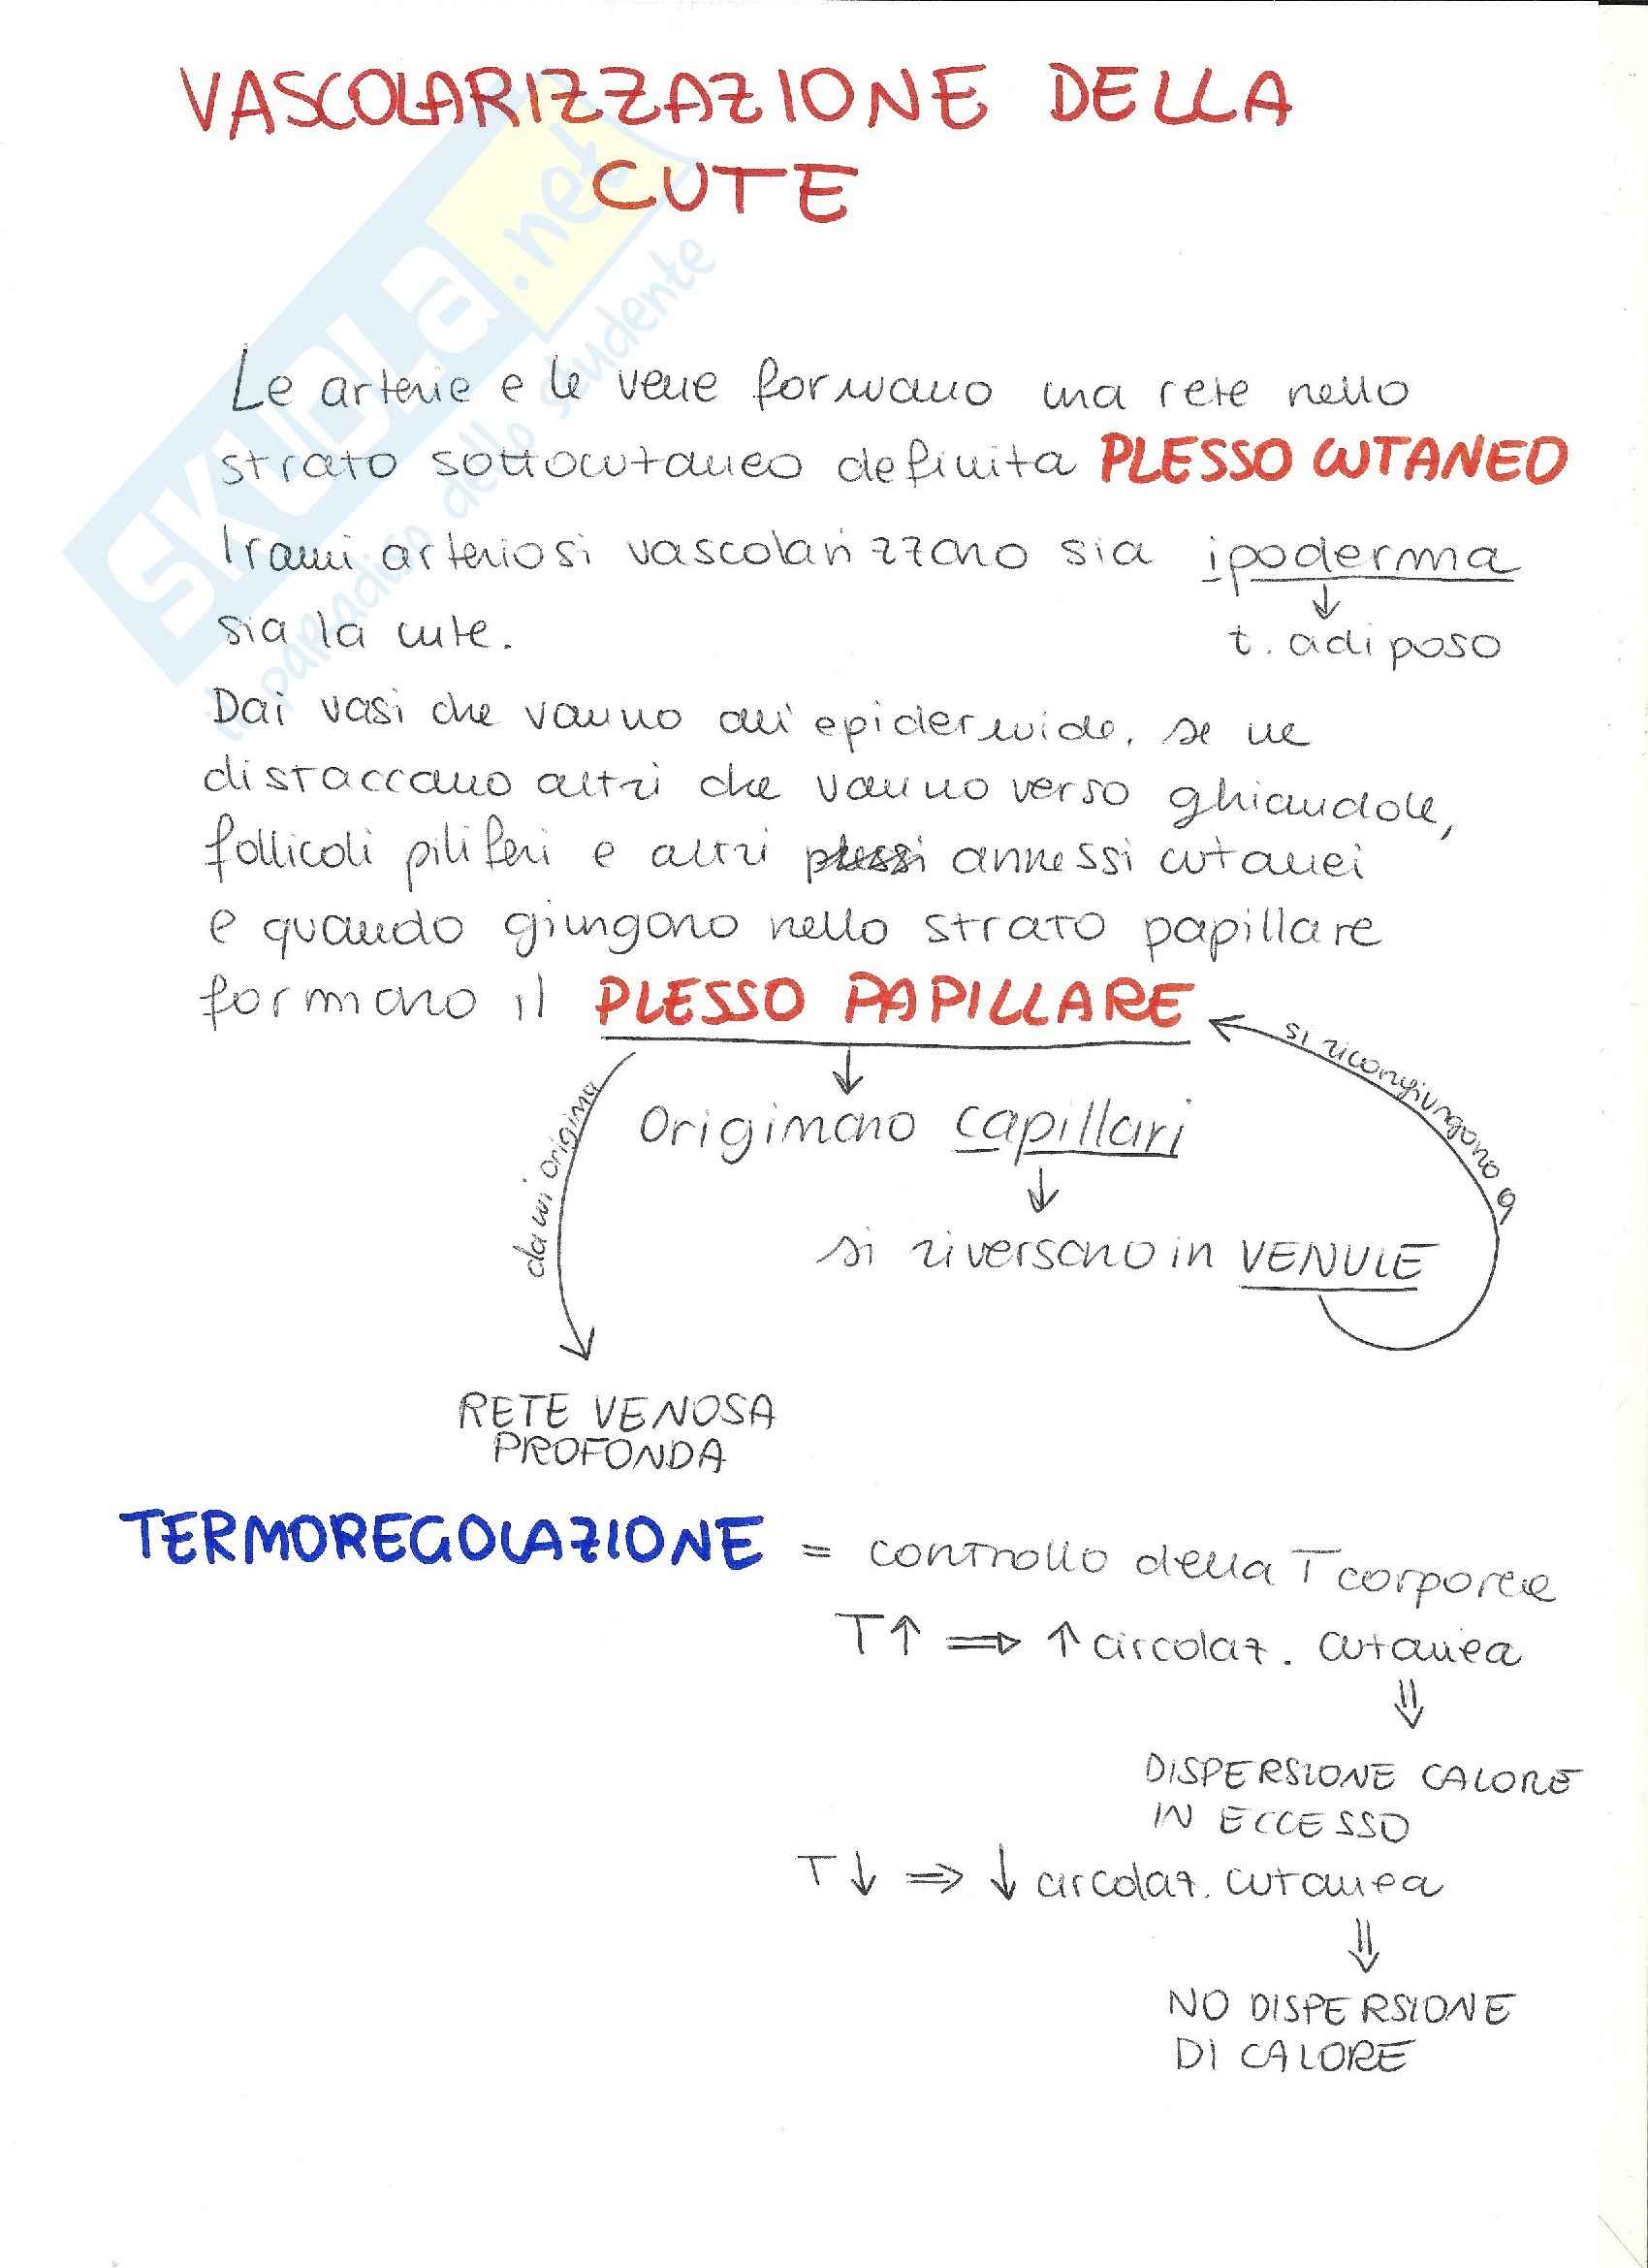 VASCOLARIZZAZIONE DELLA
CUTE
SKUOLA.net
il paradiso dello studente
Le arterie e le vene formano una rete nello
strato sottocutaneo definita PLESSO CUTANEO
I rami arteriosi vascolarizzano sia ipoderma
↓
sia la cute.
t. adiposo
Dai vasi che vanno all'epidermide, se ne
distaccano altri che vanno verso ghiandole,
follicoli piliferi e altri plessi annessi cutanei
e quando giungono nello strato papillare
formano il PLESSO PAPILLARE
si ricongiungono a
↓
da cui origina
originano capillari
↓
si riversano in VENULE
RETE VENOSA
PROFONDA
TERMOREGOLAZIONE = controllo della T corporea
T↑ ⇒ ↑ circolaz. cutanea
⇓
DISPERSIONE CALORE
IN ECCESSO
T↓ ⇒ ↓ circolaz. cutanea
⇓
NO DISPERSIONE
DI CALORE